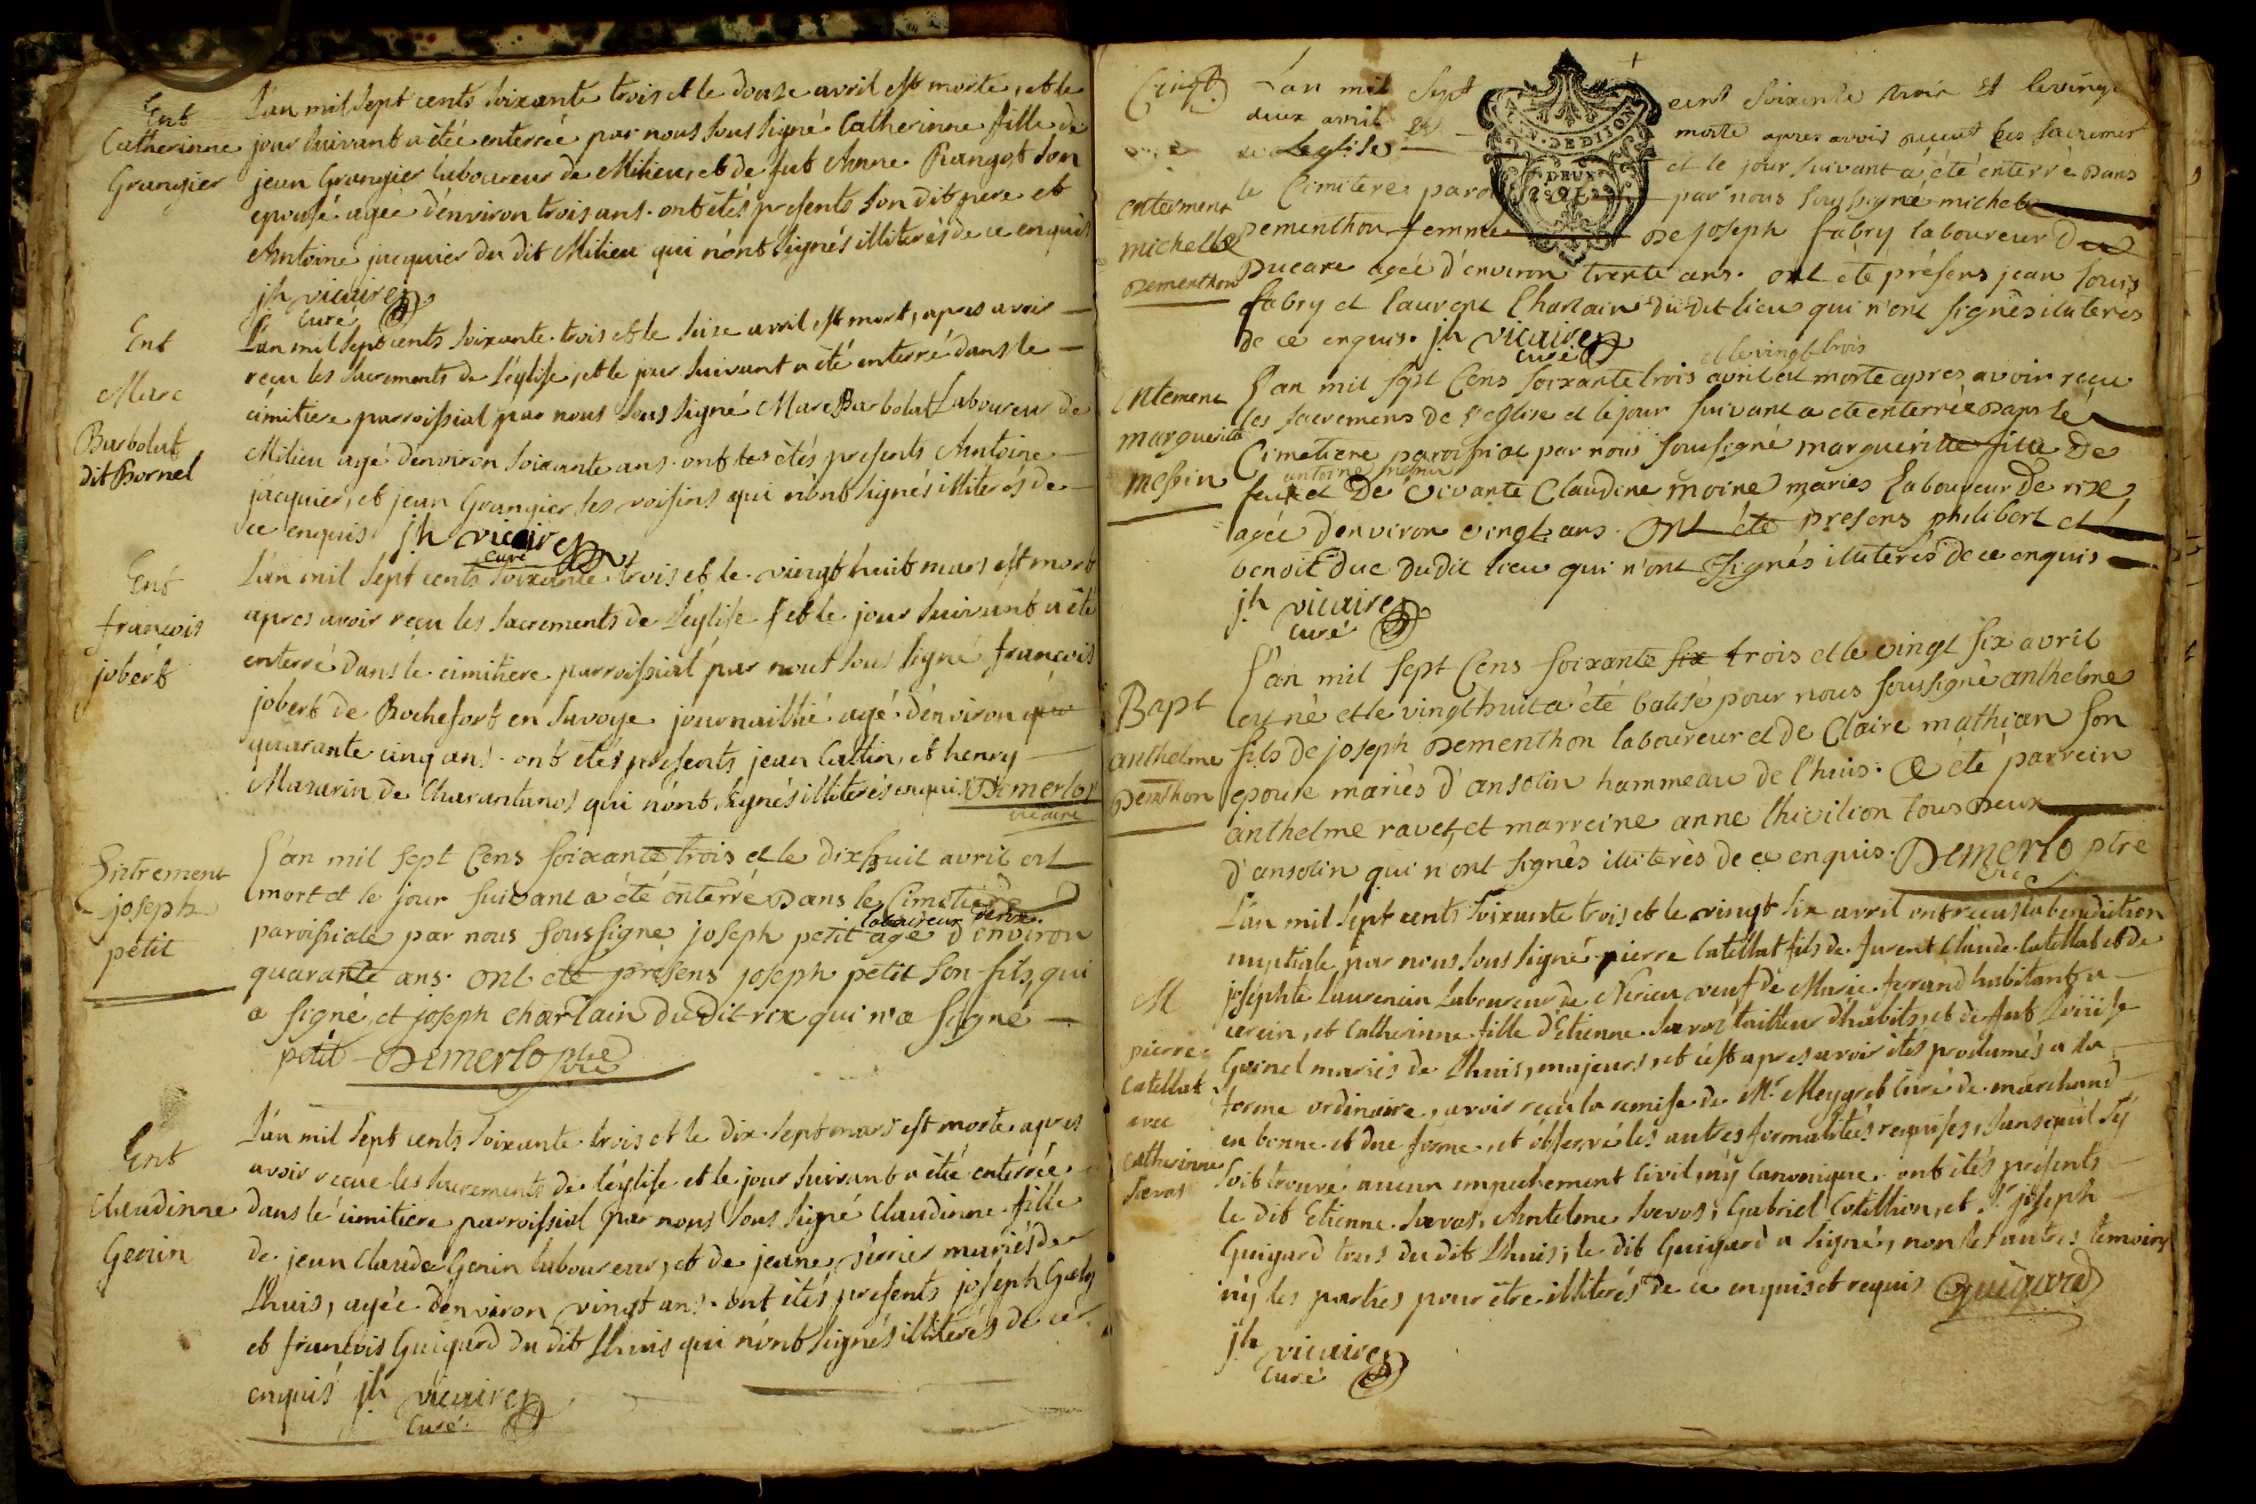 Ent
Catherinne
Grangier
L'an mil sept cents soixante trois et le douse avril est morte, et le
jour suivant a été enterrée par nous sous signé Catherinne fille de
jean Grangier laboureur de Milieu, et de fut Anne Rangot son
epouse agée d'énviron trois ans. ont étés presents son dit pere et
Antoine jacquier du dit Milieu qui n'ónt signés illiterés de ce enquis
jh vicaire
curé
Ent
Marc
Barbolat
dit Bornel
L'an mil sept cents soixante trois et le seize avril est mort, apres avoir
reçu les sacrements de l'église, et le jour suivant a été enterré dans le
cimitiere parroissial par nous sous signé Marc Barbolat Laboureur de
Milieu agé d'énviron soixante ans. ont étés presents Antoine
jacquier, et jean Grangier ses voisins qui n'ónt signés illiterés de
ce enquis jh vicaire
curé
Ent
françois
jobért
L'an mil sept cents soixante trois et le vingt huit mars est mort
apres avoir reçu les sacrements de l'église et le jour suivant a été
enterré dans le cimitiere parroissial par nout sous signé françois
jobért de Rochefort en Savoye journaillié agé d'énviron
quarante cinq ans. ont étés presents jean Cattin, et henry
Mazarin de Charantanos qui n'ónt signés illiterés enquis Demerlo
vicaire
Entrement
joseph
petit
L'an mil sept Cens soixante trois et le dixhuit avril est
mort et le jour suivant a été enterré dans le Cimetiere
laboureur derix
paroissiale par nous soussigné joseph petit agé d'environ
quarante ans. ont été présens joseph petit son fils, qui
a signé, et joseph charlain dudit rix qui n'a signé
petit Demerlo ptre
vic
Ent
Claudinne
Genin
L'an mil sept cents soixante trois et le dix sept mars est morte apres
avoir reçue les sacrements de l'église et le jour suivant a été enterrée
dans le cimitiere parroissial par nous sous signé Claudinne fille
de jean Claude Genin laboureur, et de jeanne sérrier mariés de
Lhuis, agée d'énviron vingt ans. ont étés presents joseph Goly
et françois Guigard du dit Lhuis qui n'ónt signés illiterés de ce
enquis jh vicaire
curé
L'an mil Sept
GEN. DE DIJON
DEUX
cent soixante trois et le vingt
deux avril est
morte apres avoir receut les sacremens
de Leglise
et le jour suivant a été enterré dans
enterment
michelle
dementhon
le Cimitere paro
par nous soussigné michele
dementhon femme
de joseph fabry laboureur du
Ducare agée d'environ trente ans. ont été présens jean louis
fabry et laurent Charlain du dit lieu qui n'ont signés iliterés
de ce enquis. jh vicaire
curé
entement
marguerite
messin
et le vingt trois
L'an mil sept Cens soixante trois avril est morte apres avoir recu
les sacremens de l'eglise et le jour suivant a ete enterrée dans le
Cimetiere paroissial par nous soussigné marguerite fille de
antoine messin
feu et de vivante Claudine moine mariés laboureur de rix
agée d'environ vingt ans. ont été presens philibert et
benoit duc dudit lieu qui n'ont signés iliterés de ce enquis
jh vicaire
curé
Bapt
anthelme
Demthon
L'an mil sept Cens soixante six trois et le vingt six avril
est né et le vingthuit a été batisé pour nous soussigné anthelme
fils de joseph Dementhon laboureur et de Claire mathian son
epouse mariés d'ansolin hammeau de lhuis. a été parrein
anthelme ravet, et marreine anne thivilion tous deux
d'ansolin qui n'ont signés illiterés de ce enquis. Demerlo ptre
vic
M
pierre
Catellat
avec
Catherinne
Sávos
L'an mil sept cents soixante trois et le vingt six avril ont reçus la benediction
nuptiale par nous sous signé pierre Catellat fils de furent Claude Catellat et de
joséphte Laurencin Laboureur de Nerieu veuf de Marie ferand habitant a
cerein, et Catherinne fille d'Etienne Sávos tailleur d'habits, et de fut Loüise
Guinel mariés de Lhuis, majeurs, et c'ést apres avoir étés proclamés a la
forme ordinaire, avoir reçu la remise de Mr Meygret Curé de marchand
en bonne et due forme, et obsérvé les autres formalités requises, sans qu'il s'y
soit trouvé aucun empechement civil, n'y canonique. ont étés présents
le dit Etienne Sávos, Antelme Sávos, Gabriel Cotillion, et Sr joseph
Guigard tous du dit Lhuis; le dit Guigard a signé, non les autres temoins
n'y les parties pour etre illiterés de ce enquis et requis Guigard
jh vicaire
curé